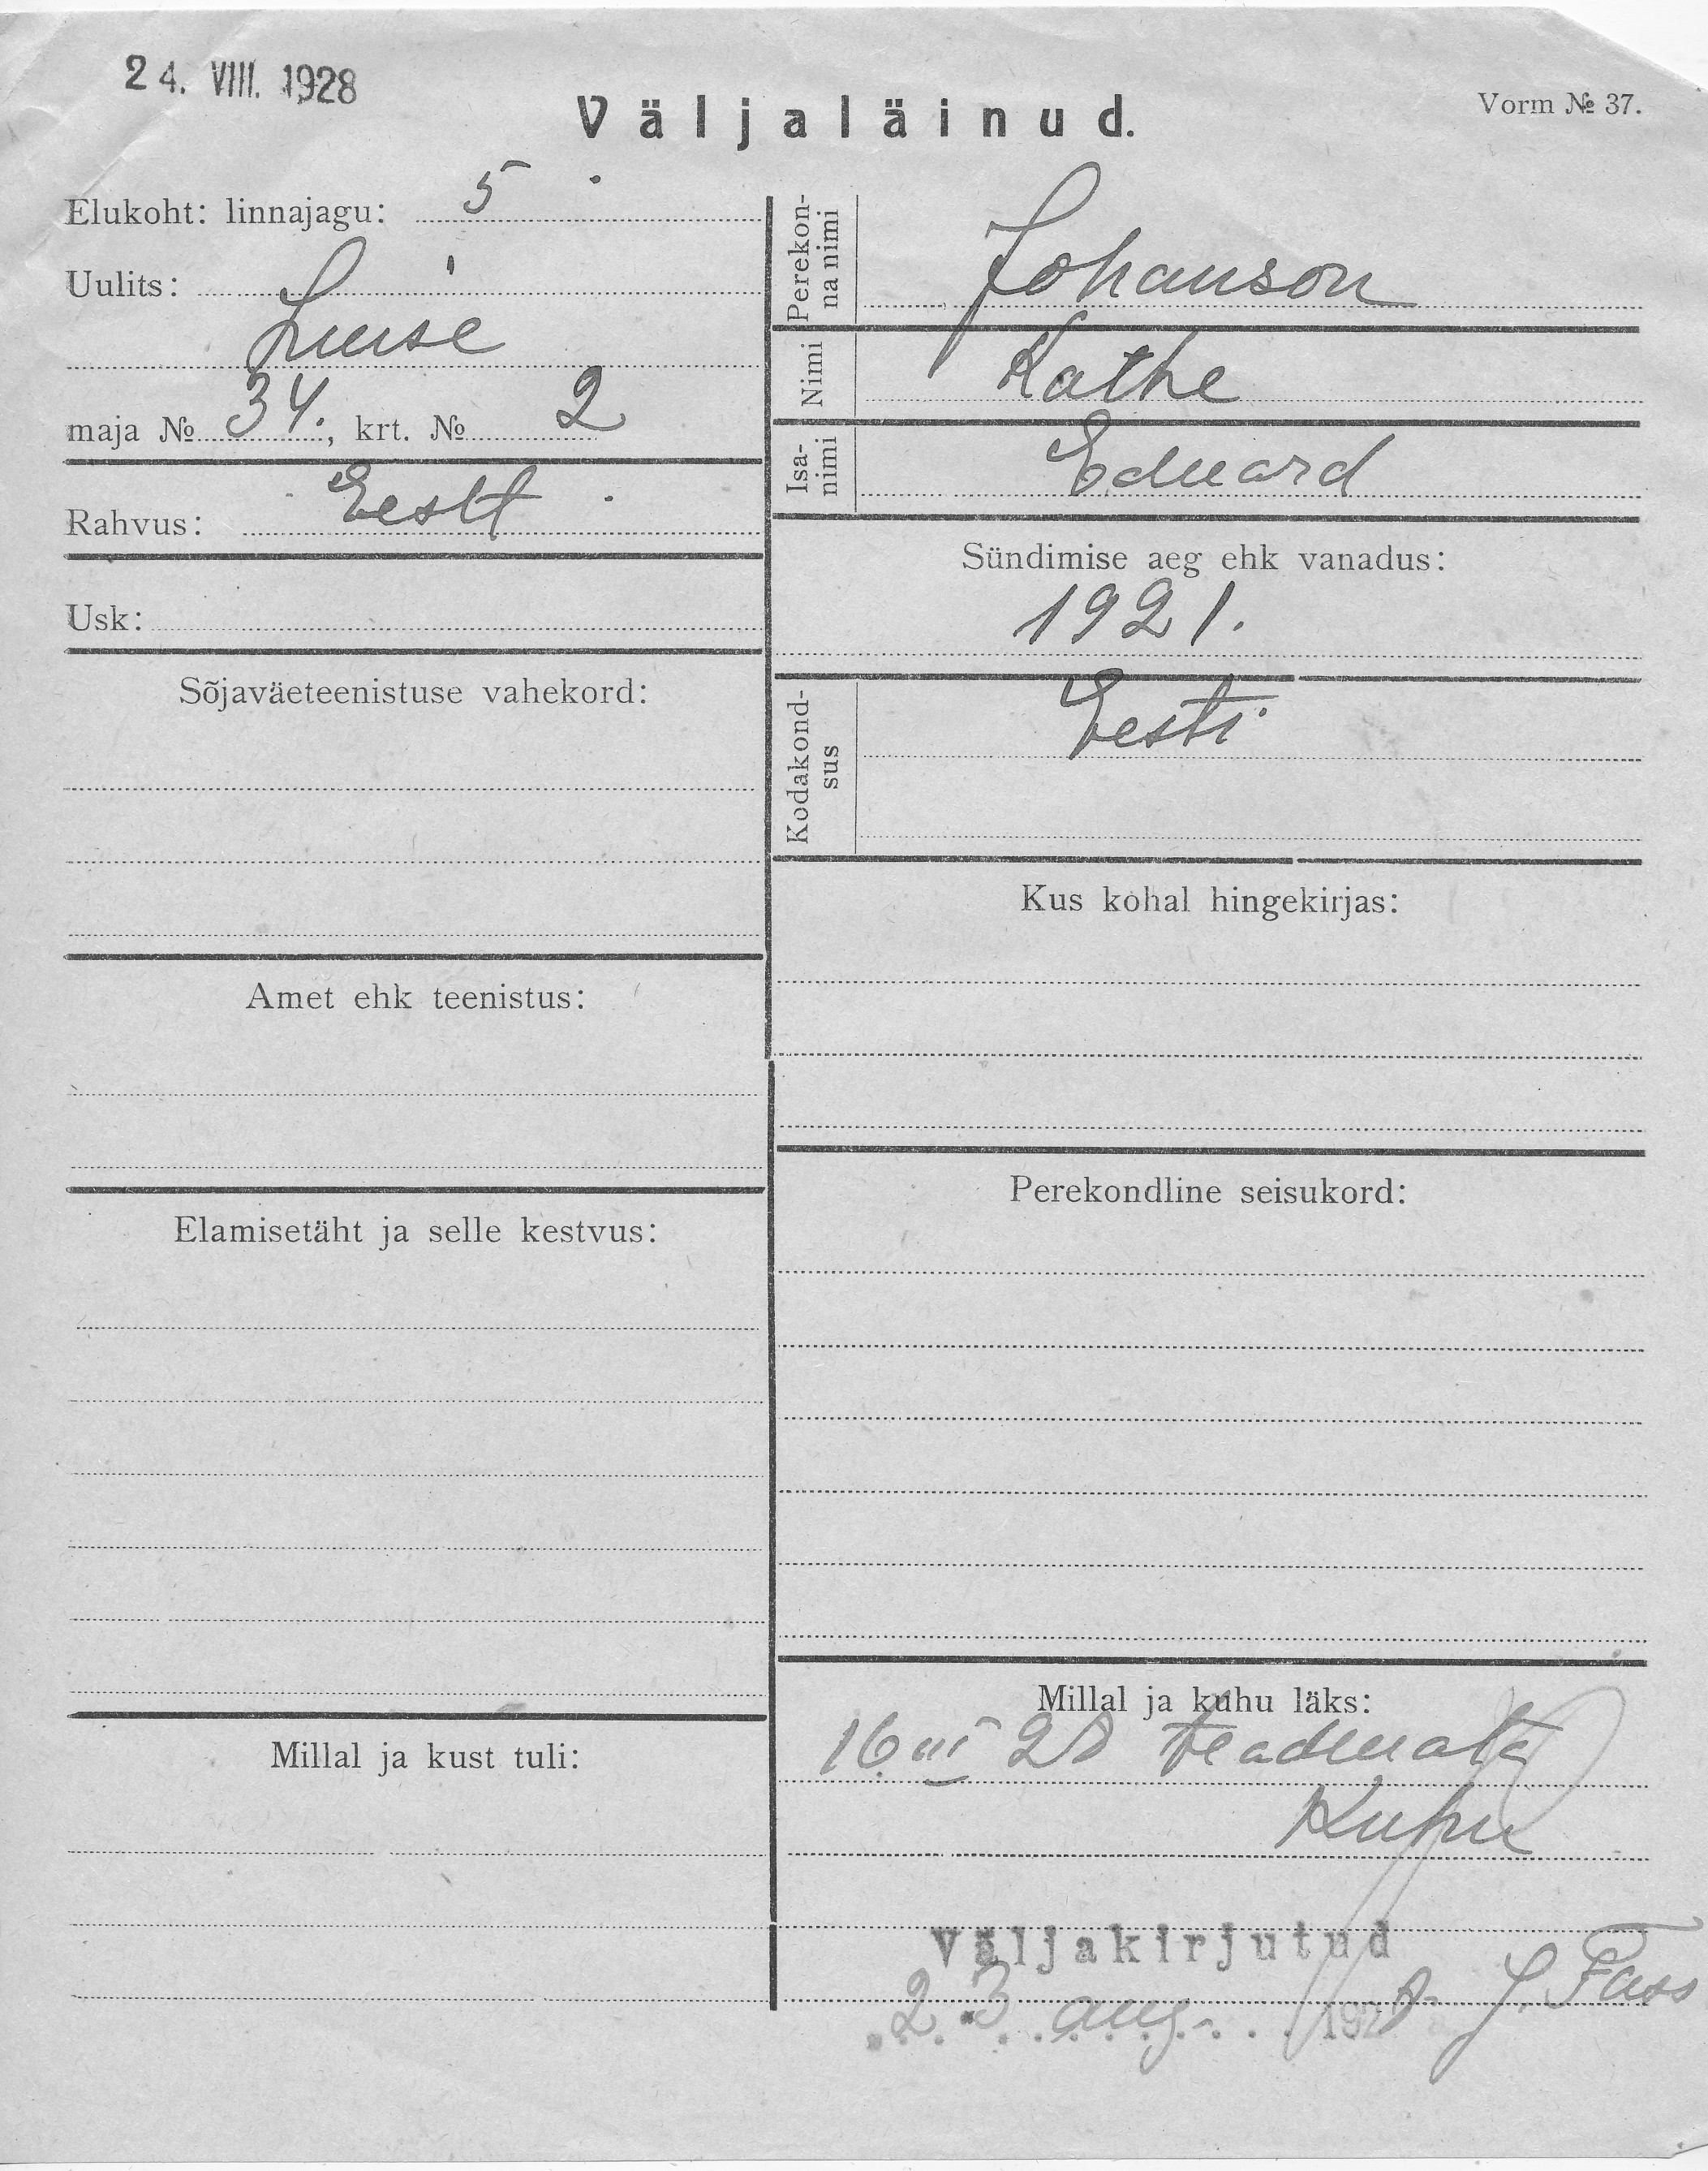 24. VIII. 1928
Väljaläinud.
Vorm № 37.
Elukoht: linnajagu: 5
Uulits:
Luise
maja № 34., krt. № 2
Rahvus: Eestt
Usk:
Sõjaväeteenistuse vahekord:
Amet ehk teenistus:
Elamisetäht ja selle kestvus:
Millal ja kust tuli:
Perekon-
na nimi
Johanson
Nimi
Kathe
Isa-
nimi
Eduard
Sündimise aeg ehk vanadus:
1921.
Kodakond-
sus
Eesti
Kus kohal hingekirjas:
Perekondline seisukord:
Millal ja kuhu läks:
16 III 28 teadmata
Kuhu
Väljakirjutud
23 aug. 1928. J. Pass